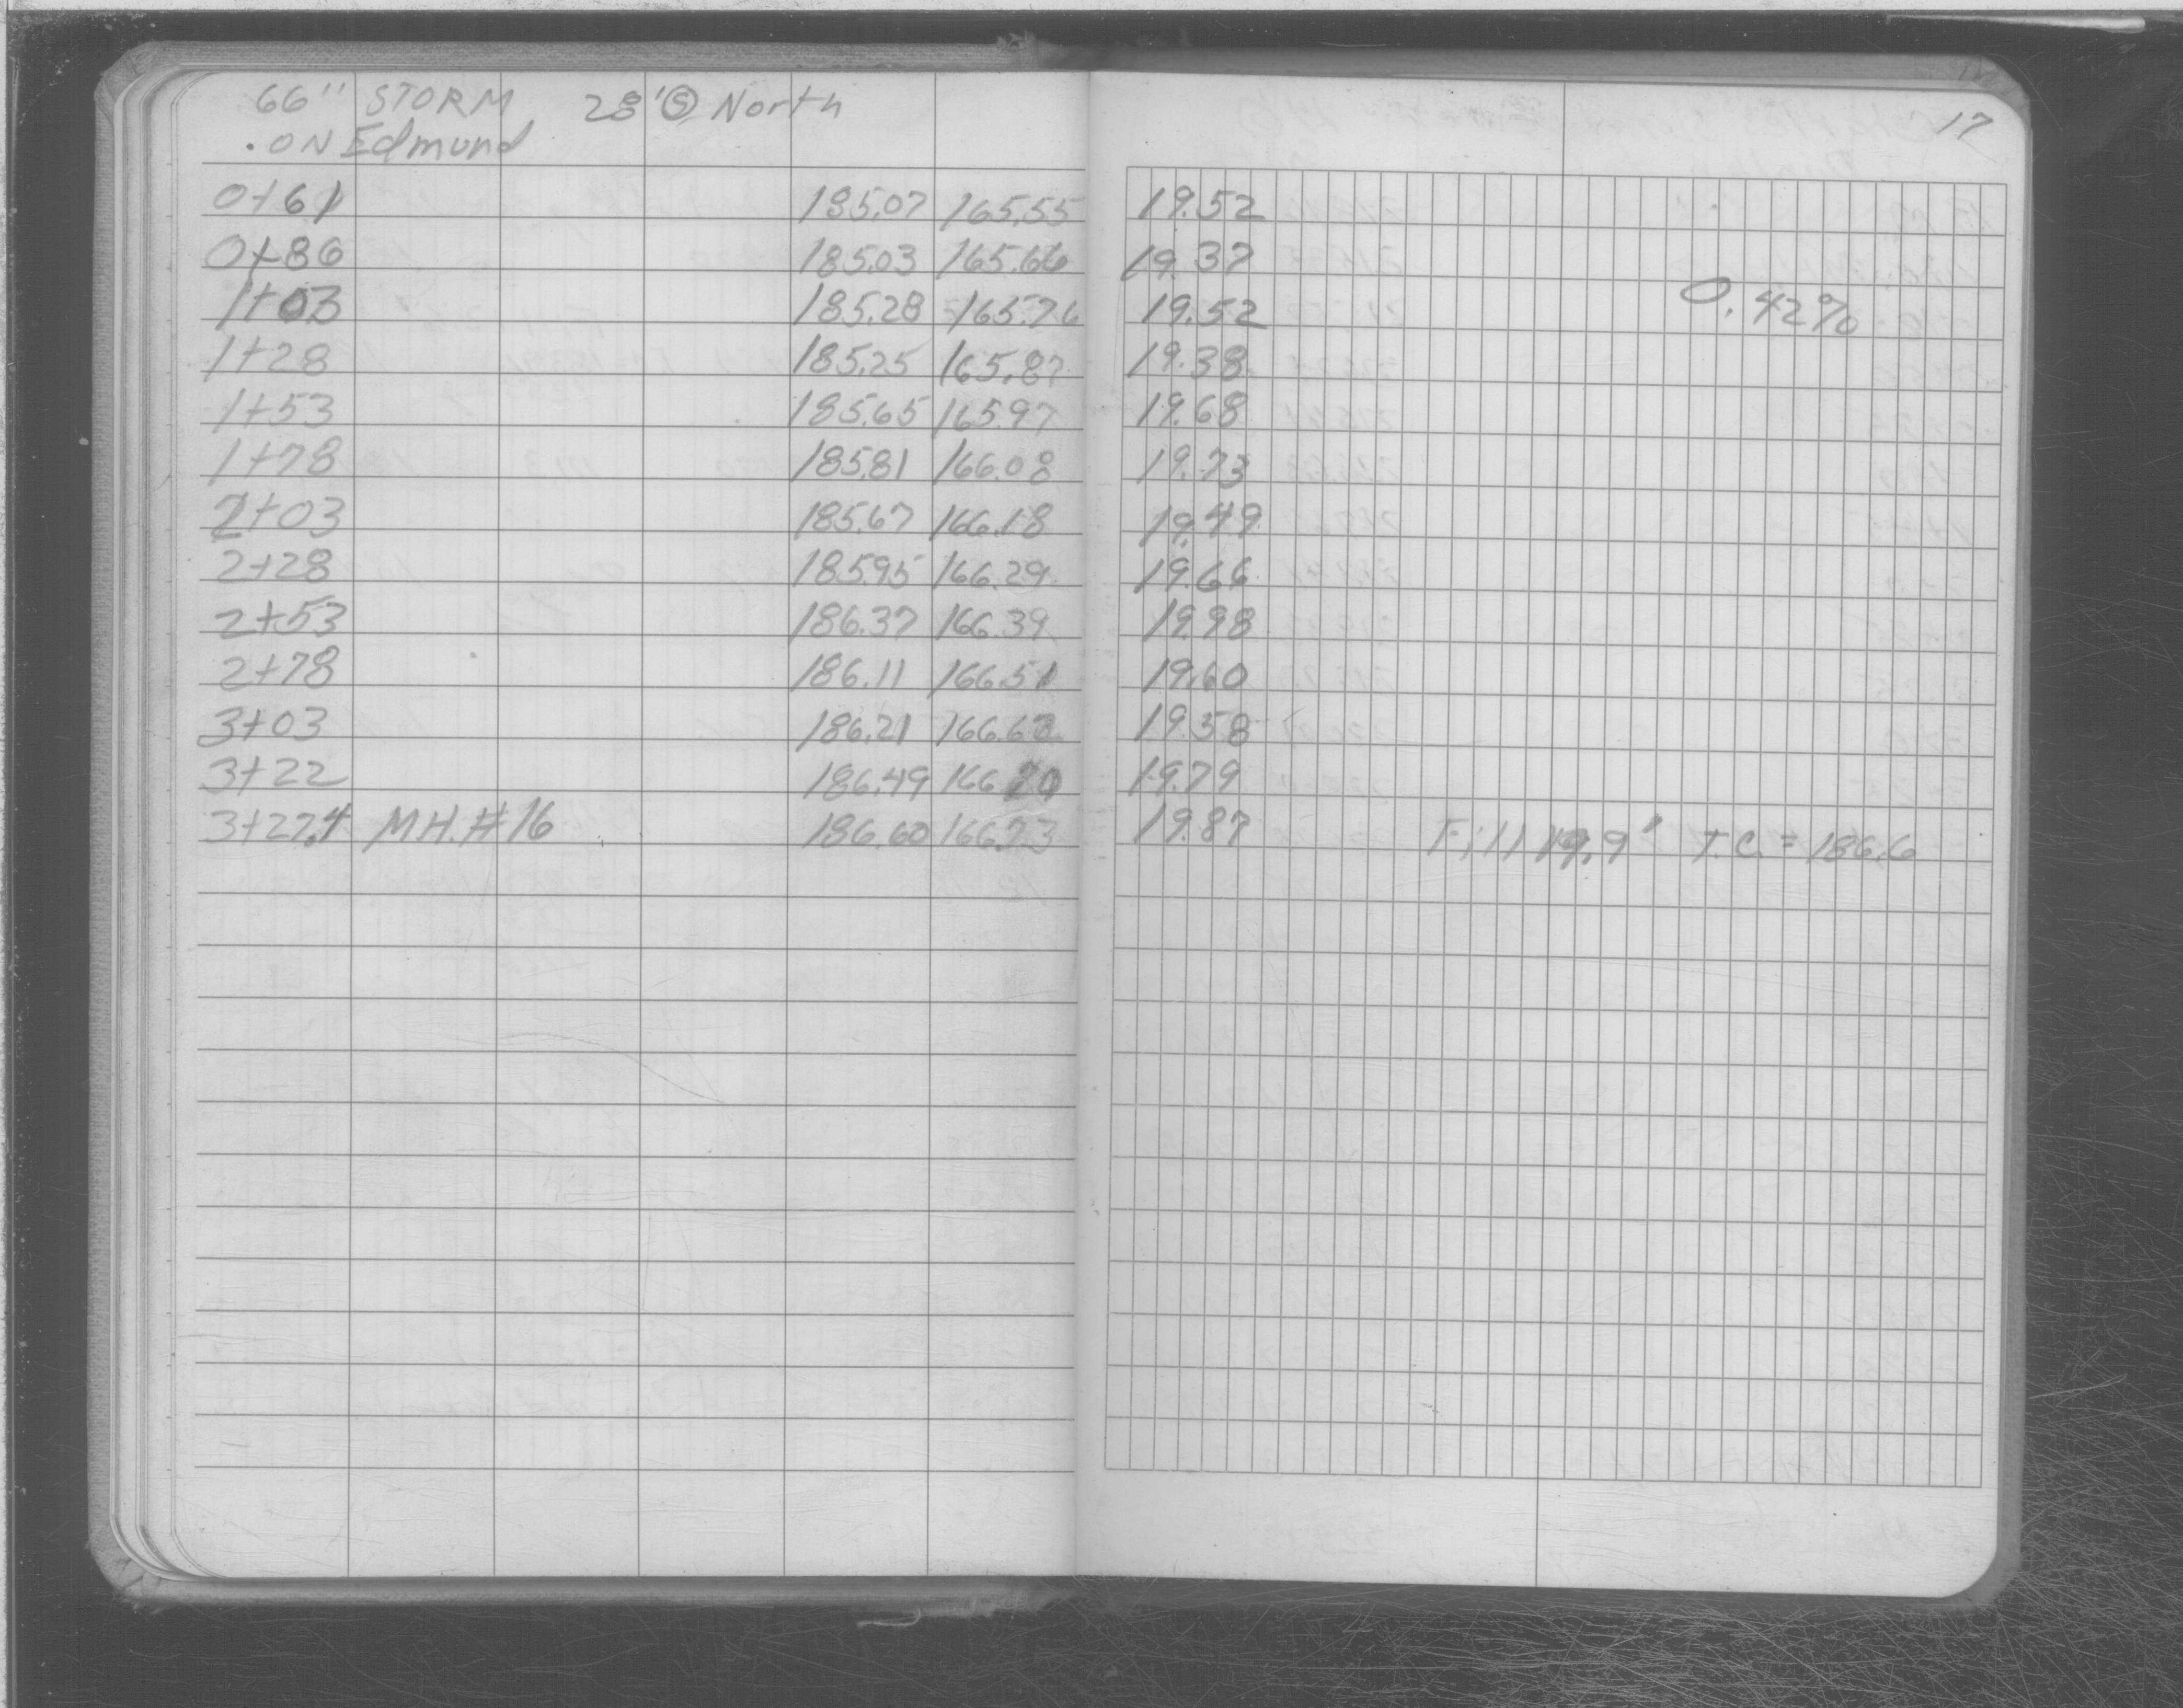 66" STORM 28' Ⓢ North
.ON Edmund
17
0+61 185.07 165.55 19.52
0+86 185.03 165.66 19.37
1+03 185.28 165.76 19.52 0.42%
1+28 185.25 165.87 19.38
1+53 185.65 165.97 19.68
1+78 185.81 166.08 19.73
2+03 185.67 166.18 19.49
2+28 185.95 166.29 19.66
2+53 186.37 166.39 19.98
2+78 186.11 166.51 19.60
3+03 186.21 166.63 19.58
3+22 186.49 166.70 19.79
3+27.4 M.H.#16 186.60 166.73 19.87 Fill 19.9' T.C.=186.6